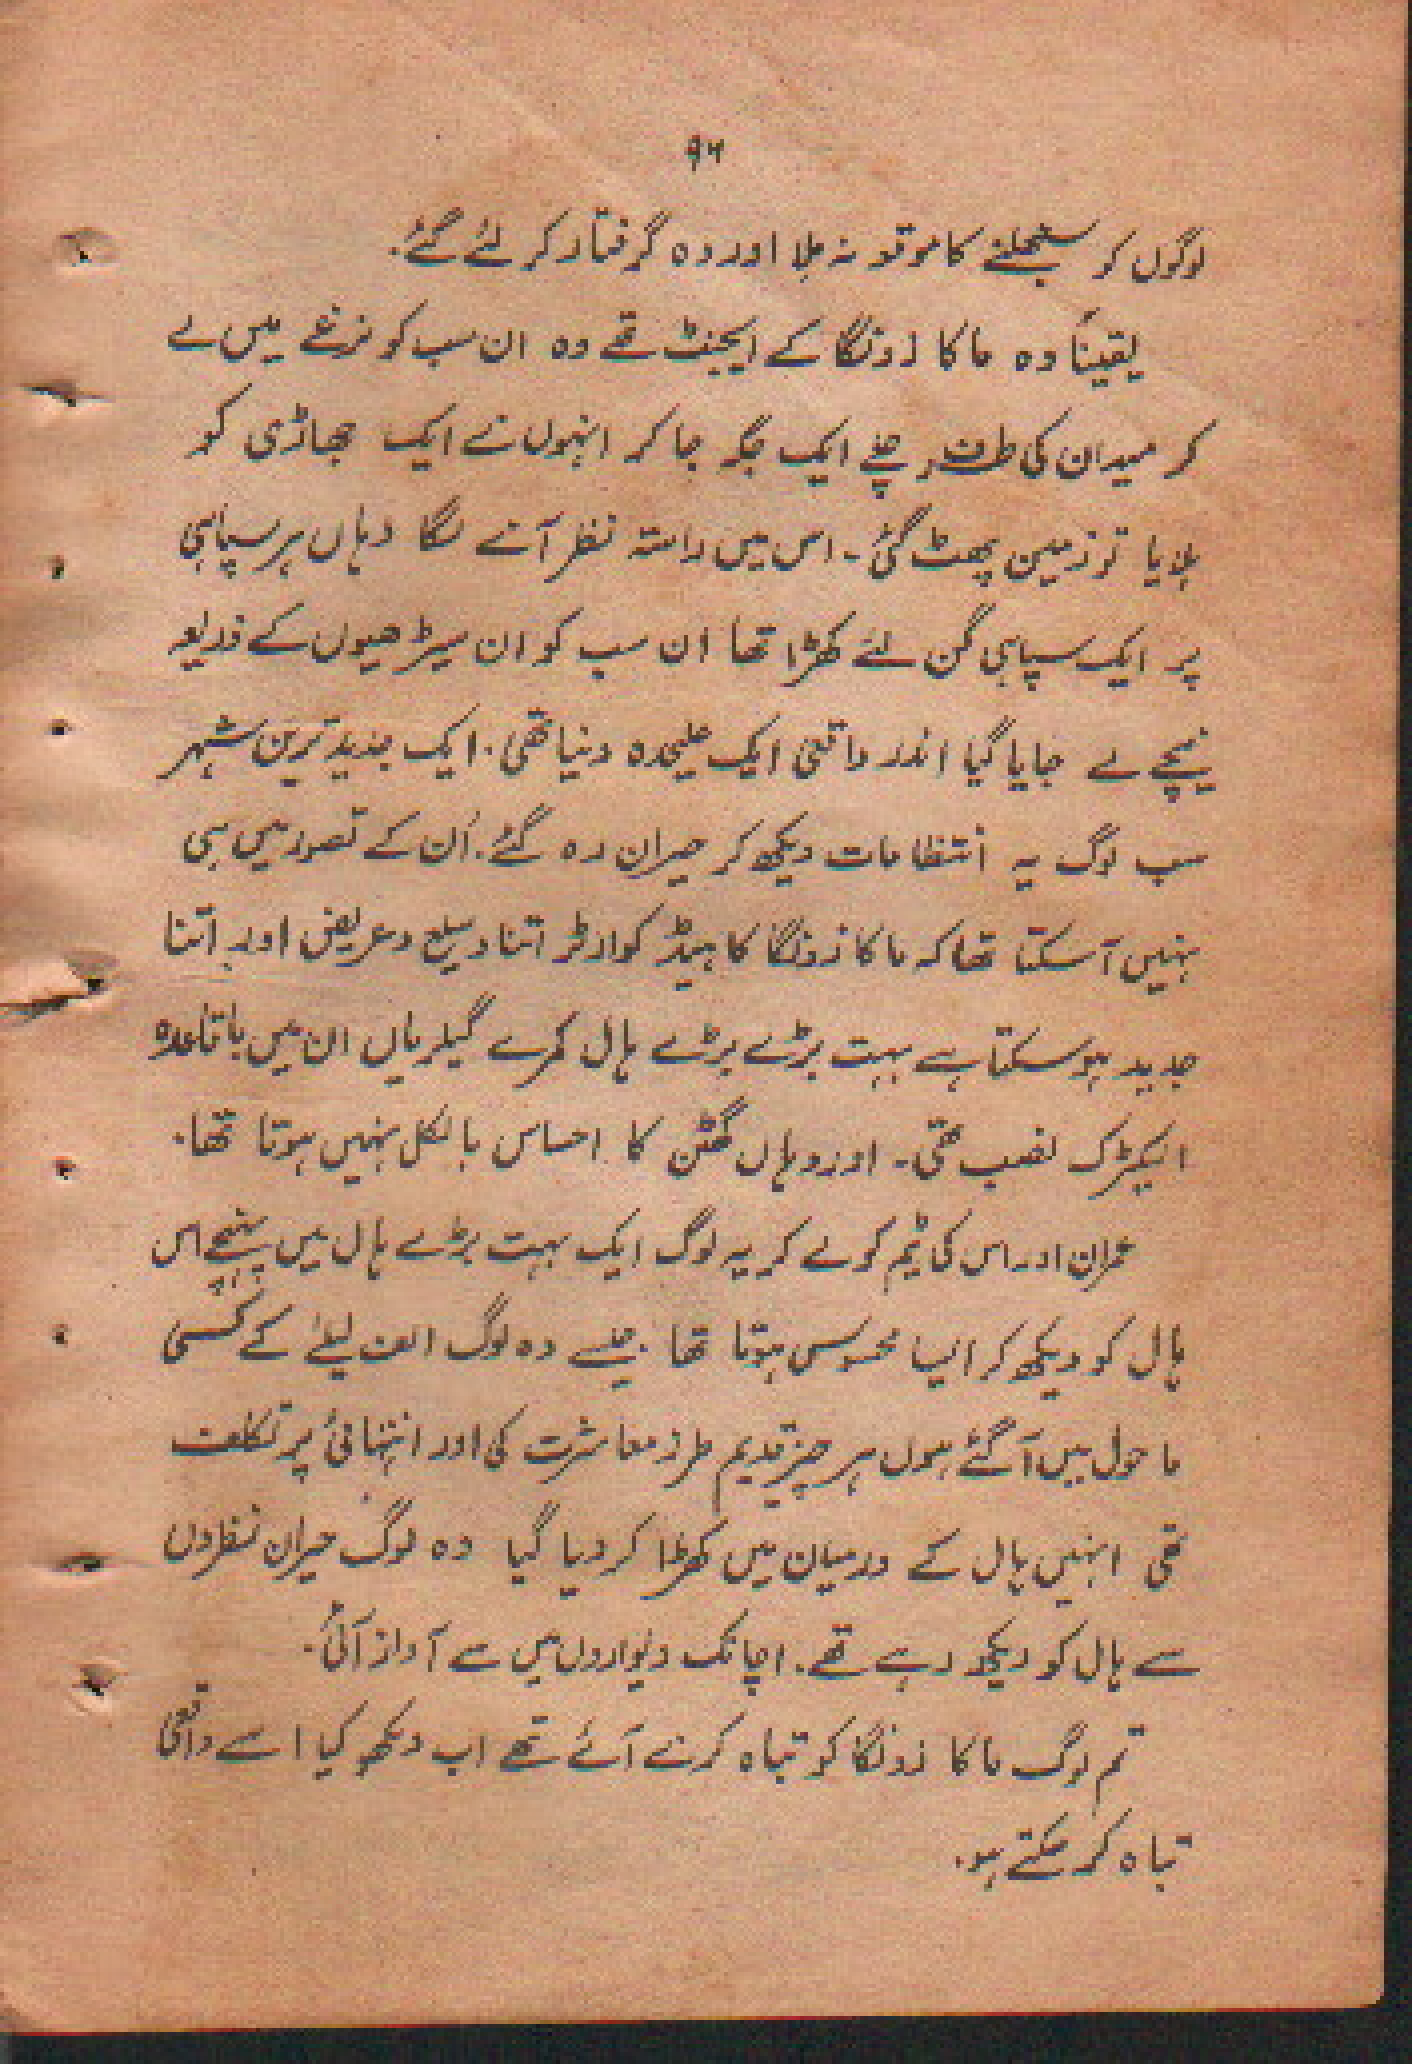 ۹۶
لوگوں کو سنبھلنے کا موقع نہ ملا اور وہ گرفتار کر لئے گئے۔
یقیناً وہ ماکا زونگا کے ایجنٹ تھے وہ ان سب کو نرغے میں لے
کر میدان کی طرف چلے ایک جگہ جا کر انہوں نے ایک جھاڑی کو
ہلایا تو زمین پھٹ گئی۔ اس میں راستہ نظر آنے لگا وہاں ہر سیڑھی
پر ایک سپاہی گن لئے کھڑا تھا ان سب کو ان سیڑھیوں کے ذریعہ
نیچے لے جایا گیا اندر واقعی ایک علیحدہ دنیا تھی۔ ایک جدید ترین شہر
سب لوگ یہ انتظامات دیکھ کر حیران رہ گئے۔ اُن کے تصور میں بھی
نہیں آسکتا تھا کہ ماکا زونگا کا ہیڈ کوارٹر اتنا وسیع و عریض اور اتنا
جدید ہوسکتا ہے بہت بڑے بڑے ہال کمرے گیلریاں ان میں باقاعدہ
الیکٹرک نصب تھی۔ اور وہاں گھٹن کا احساس بالکل نہیں ہوتا تھا۔
عمران اور اس کی ٹیم کو لے کر یہ لوگ ایک بہت بڑے ہال میں پہنچے اس
ہال کو دیکھ کر ایسا محسوس ہوتا تھا جیسے وہ لوگ الف لیلےٰ کے کسی
ماحول میں آگئے ہوں ہر چیز قدیم طرز معاشرت کی اور انتہائی پرتکلف
تھی انہیں ہال کے درمیان میں کھڑا کر دیا گیا وہ لوگ حیران نظروں
سے ہال کو دیکھ رہے تھے۔ اچانک دیواروں میں سے آواز آئی۔
تم لوگ ماکا زونگا کو تباہ کرنے آئے تھے اب دیکھو کیا اسے واقعی
تباہ کرسکتے ہو۔